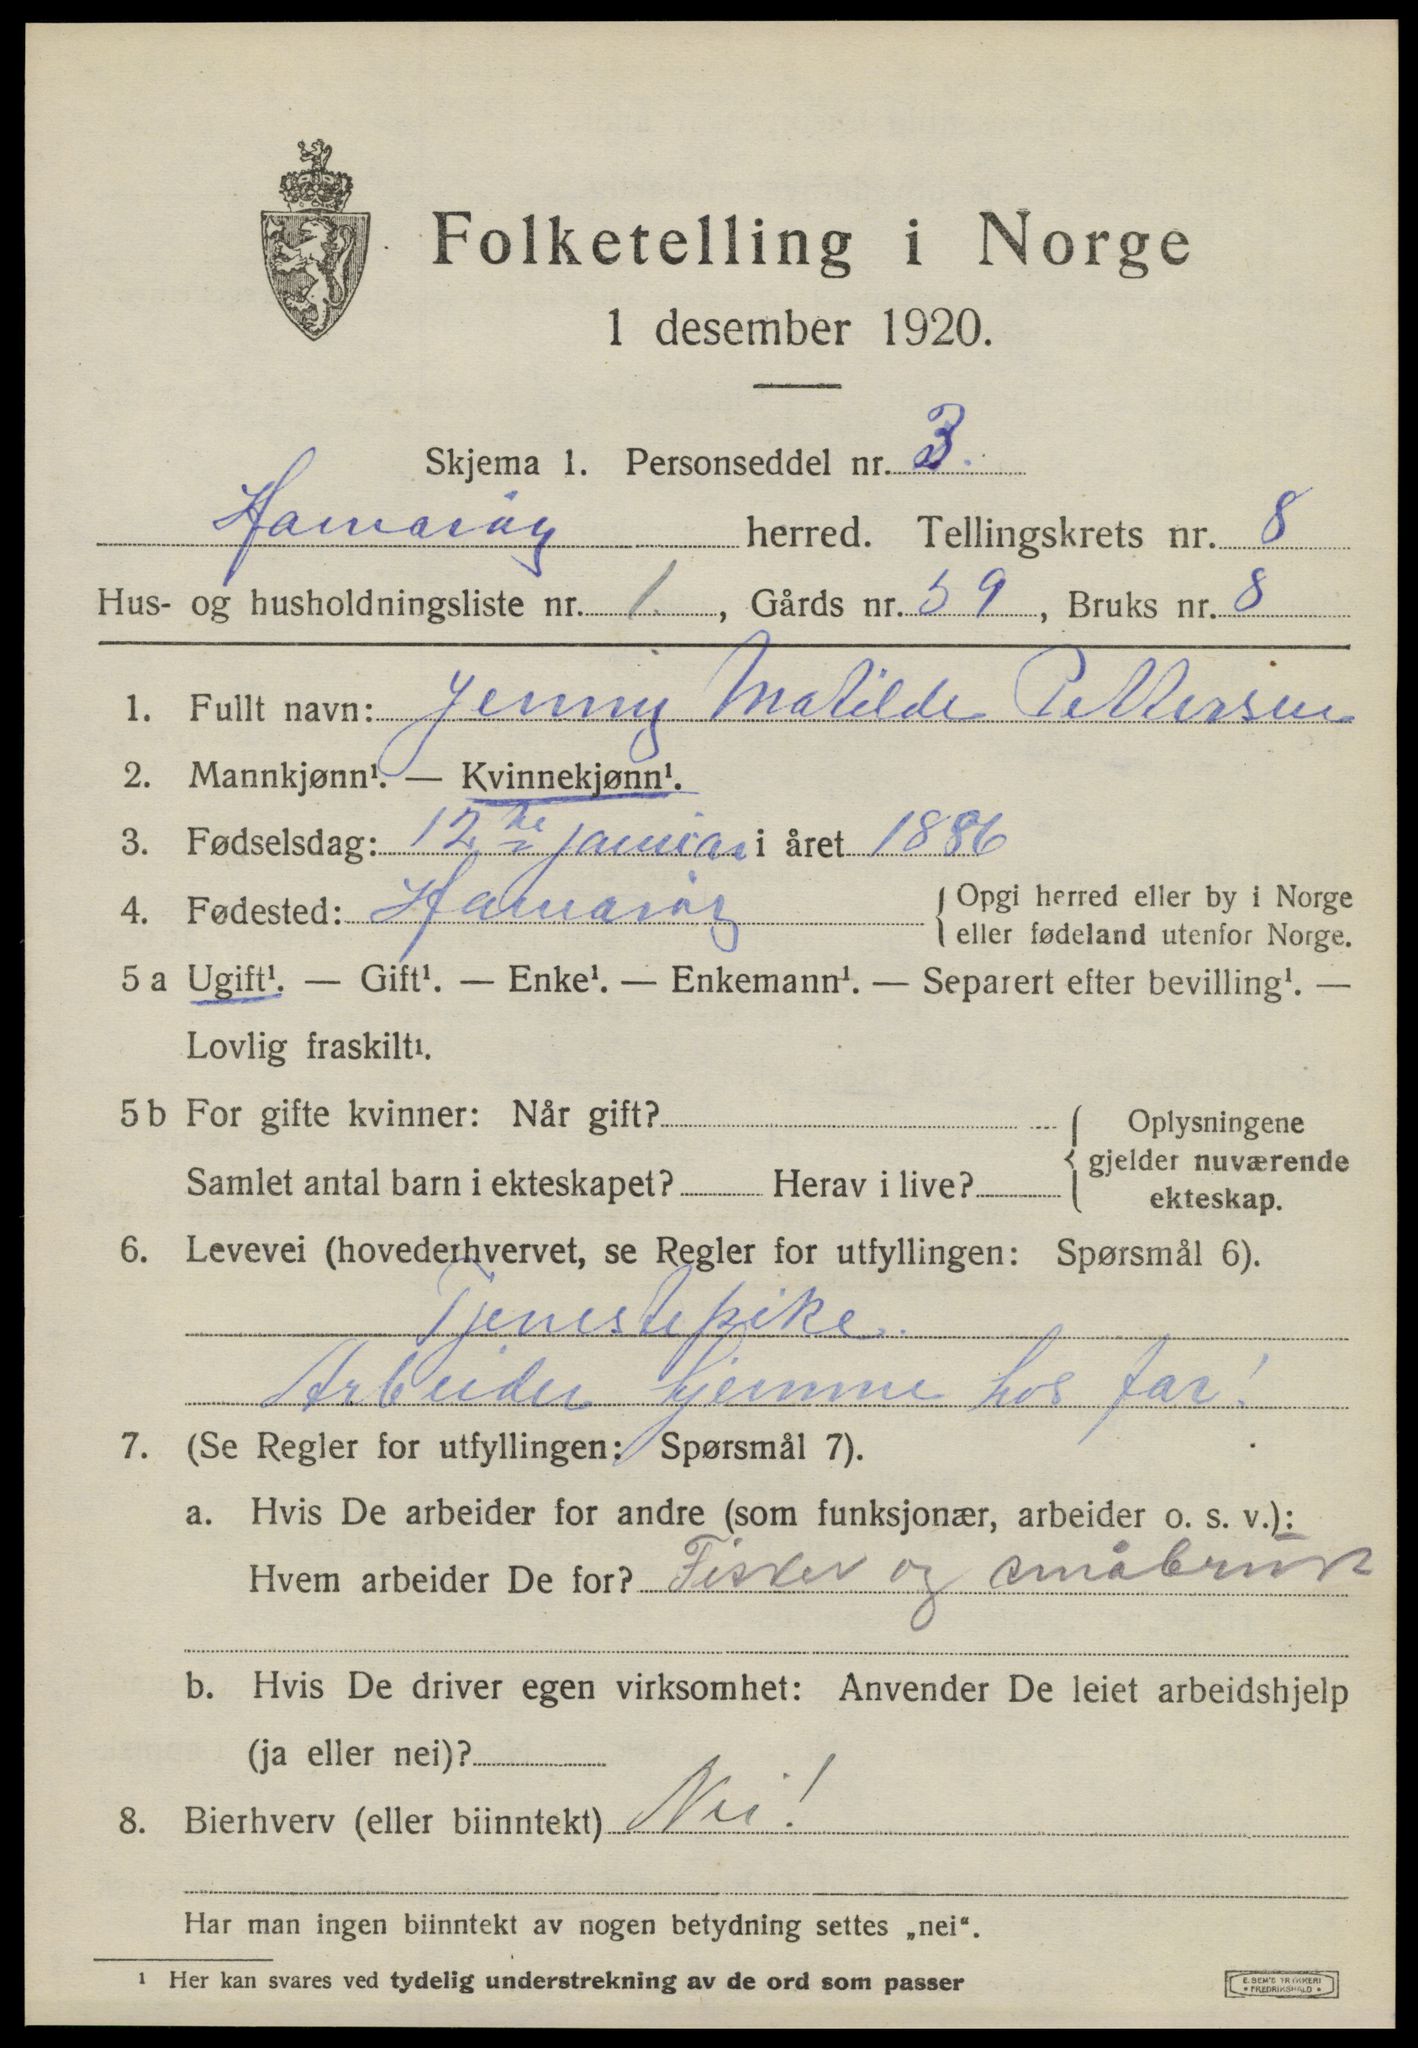 Folketelling i Norge
1 desember 1920.
Skjema 1. Personseddel nr. 3.
Hamarøy herred. Tellingskrets nr. 8
Hus- og husholdningsliste nr. 1., Gårds nr. 59, Bruks nr. 8
1. Fullt navn: Jenny Matilde Pettersen
2. Mannkjønn¹. — Kvinnekjønn¹.
3. Fødselsdag: 12te januar i året 1886
4. Fødested: Hamarøy { Opgi herred eller by i Norge
eller fødeland utenfor Norge.
5 a Ugift¹. — Gift¹. — Enke¹. — Enkemann¹. — Separert efter bevilling¹. —
Lovlig fraskilt¹.
5 b For gifte kvinner: Når gift? { Oplysningene
gjelder nuværende
Samlet antal barn i ekteskapet? Herav i live?
ekteskap.
6. Levevei (hovederhvervet, se Regler for utfyllingen: Spørsmål 6).
Tjenestepike.
Arbeider hjemme hos far!
7. (Se Regler for utfyllingen: Spørsmål 7).
a. Hvis De arbeider for andre (som funksjonær, arbeider o. s. v.):
Hvem arbeider De for? Fisker og småbruk
b. Hvis De driver egen virksomhet: Anvender De leiet arbeidshjelp
(ja eller nei)?
8. Bierhverv (eller biinntekt) Nei!
Har man ingen biinntekt av nogen betydning settes „nei“.
¹ Her kan svares ved tydelig understrekning av de ord som passer
E. SEM'S TRYKKERI
• FREDRIKSHALD •